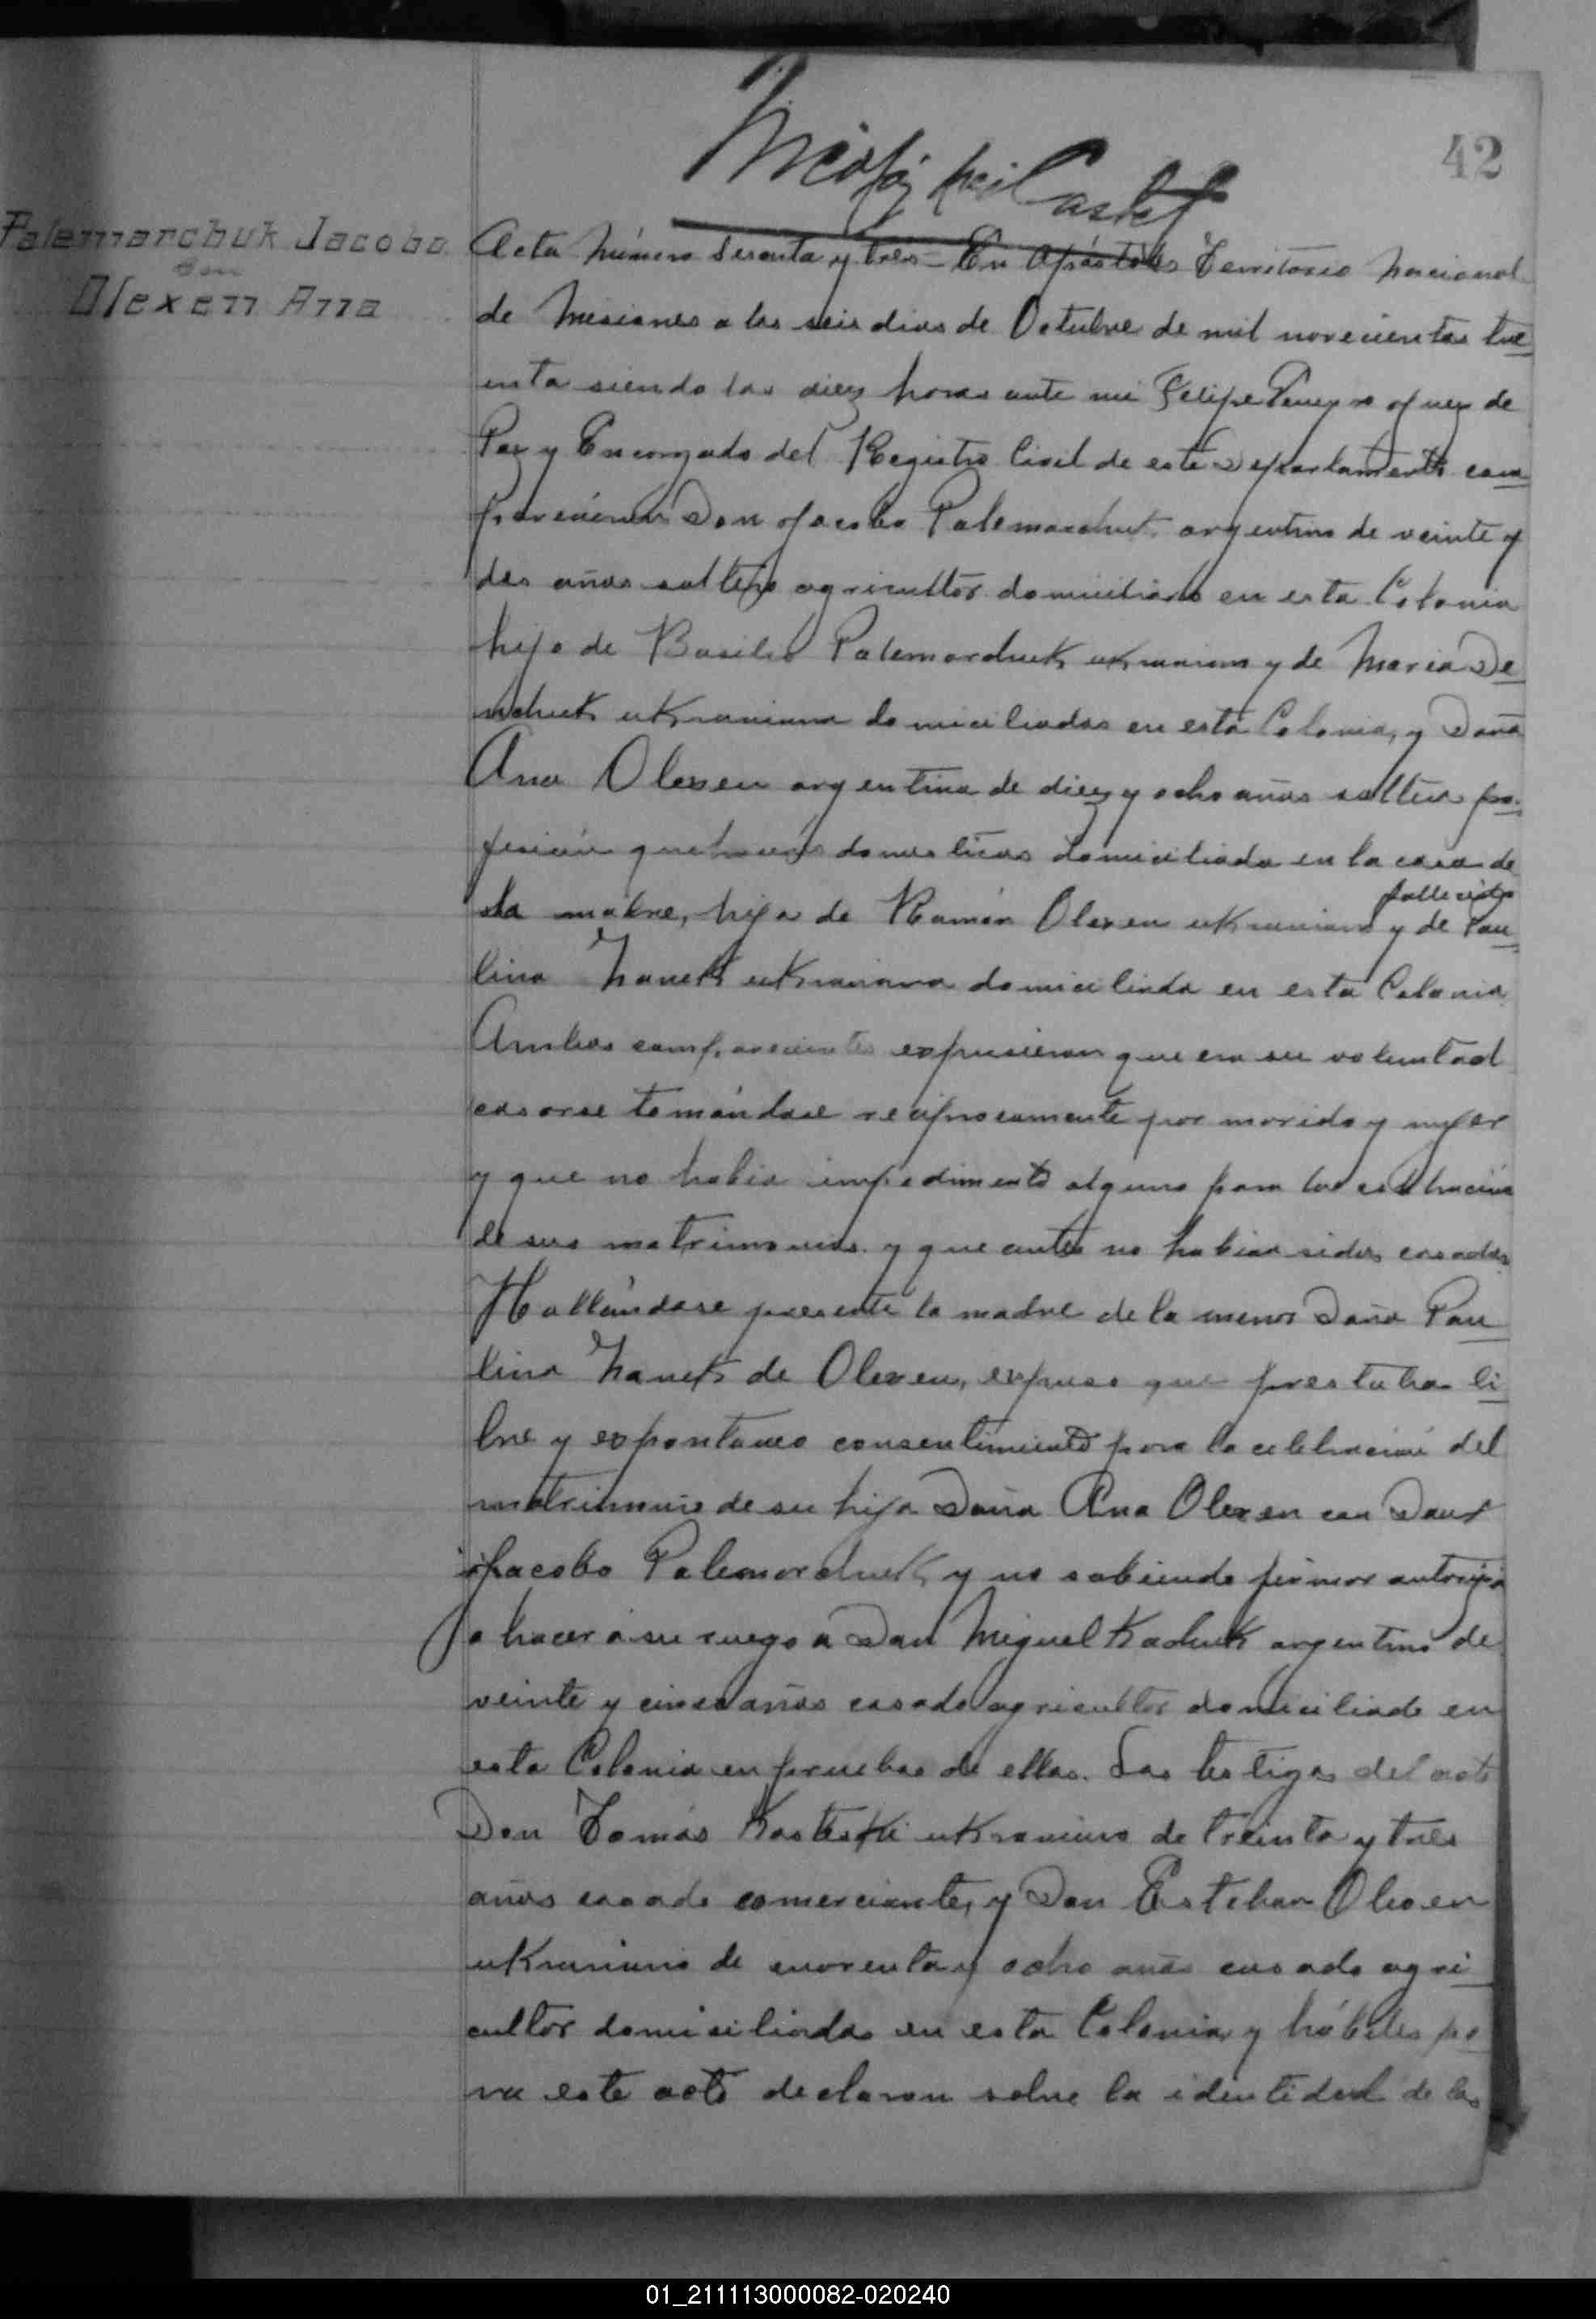 42
Palemarchuk Jacobo
con
Olexen Anna
Acta número sesenta y tres - En Apóstoles Territorio Nacional
de Misiones a los seis dias de Octubre de mil novecientos tre
inta siendo las diez horas ante mi Felipe Juez de
Paz y Encargado del Registro Civil de este Departamento com
parecieron Don Jacobo Palemarchuk argentino de veinte y
dos años soltero agricultor domiciliado en esta Colonia
hijo de Basilio Palemarchuk ukraniano y de Maria De
mchuk ukraniana domiciliados en esta Colonia, y Doña
Ana Olexen argentina de diez y ocho años soltera pro
fesión quehaceres domesticos domiciliada en la casa de
la madre, hija de Ramón Olexen ukraniano fallecido y de Pau
lina ukraniana domiciliada en esta Colonia
Ambos comparecientes expusieron que era su voluntad
casarse tomándose reciprocamente por marido y mujer
y que no habia impedimento alguno para la celebración
de sus matrimonios y que antes no habian sidos casados
Hallándose presente la madre de la menor Doña Pau
lina de Olexen, expuso que prestaba li
bre y expontaneo consentimiento para la celebración del
matrimonio de su hija Doña Ana Olexen con Don
Jacobo Palemarchuk y no sabiendo firmar autoriza
a hacer a su ruego a Don Miguel Kachuk argentino de
veinte y cinco años casado agricultor domiciliado en
esta Colonia en prueba de ellas. Los testigos del acto
Don Tomás Kosteski ukraniano de treinta y tres
años casado comerciante, y Don Esteban Olexen
ukraniano de cuarenta y ocho años casado agri
cultor domiciliados en esta Colonia y hábiles pa
ra este acto declaran sobre la identidad de los
01_211113000082-020240